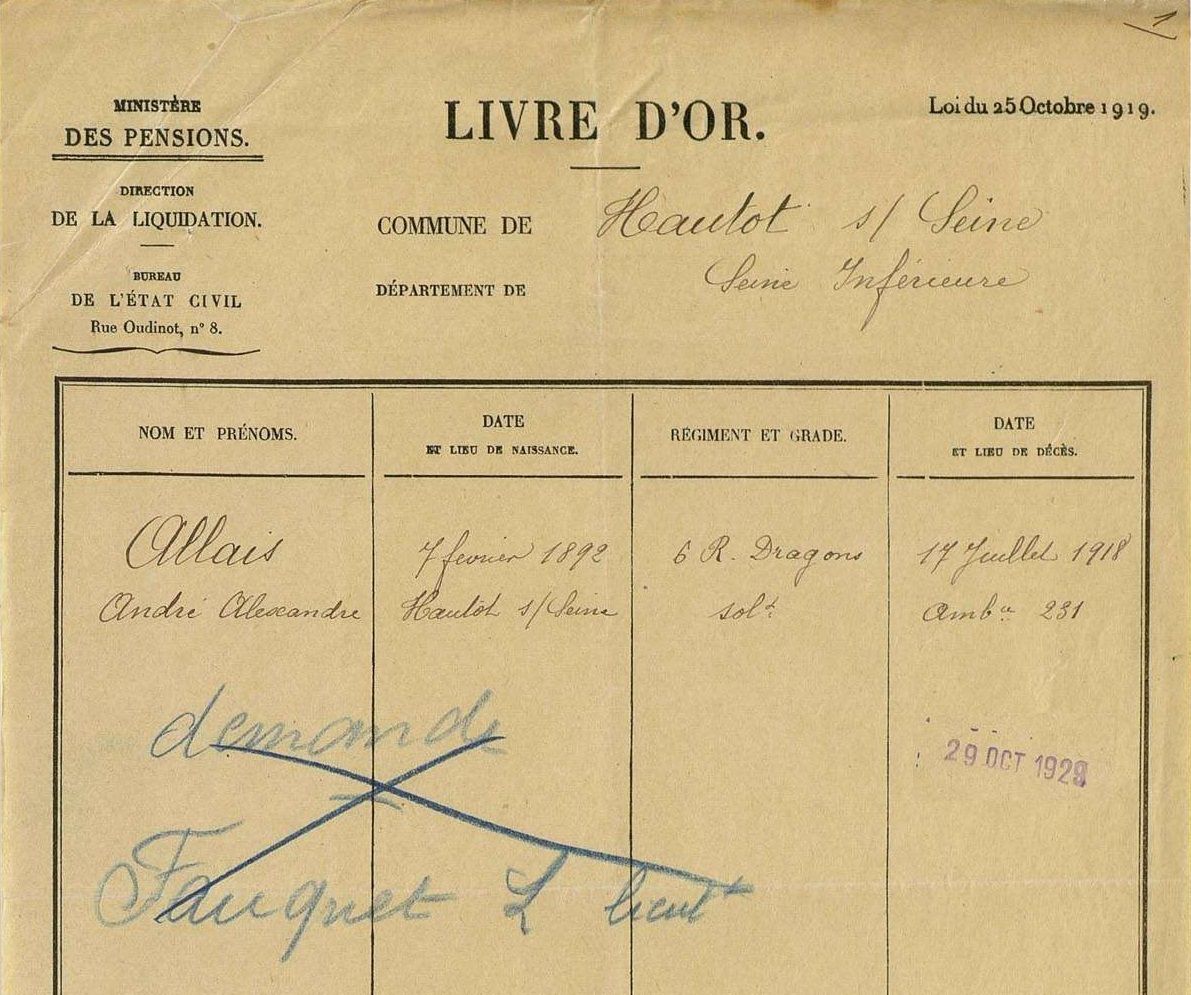 1
MINISTÈRE
DES PENSIONS.
DIRECTION
DE LA LIQUIDATION.
BUREAU
DE L'ÉTAT CIVIL
Rue Oudinot, n° 8.
LIVRE D'OR.
Loi du 25 Octobre 1919.
COMMUNE DE Hautot s/ Seine
DÉPARTEMENT DE Seine Inférieure
NOM ET PRÉNOMS.
DATE
ET LIEU DE NAISSANCE.
RÉGIMENT ET GRADE.
DATE
ET LIEU DE DÉCÈS.
Allais 7 février 1892 6 R. Dragons 17 Juillet 1918
André Alexandre Hautot s/ Seine solt Ambce 231
demande
29 OCT 1929
Fauquet L lieut